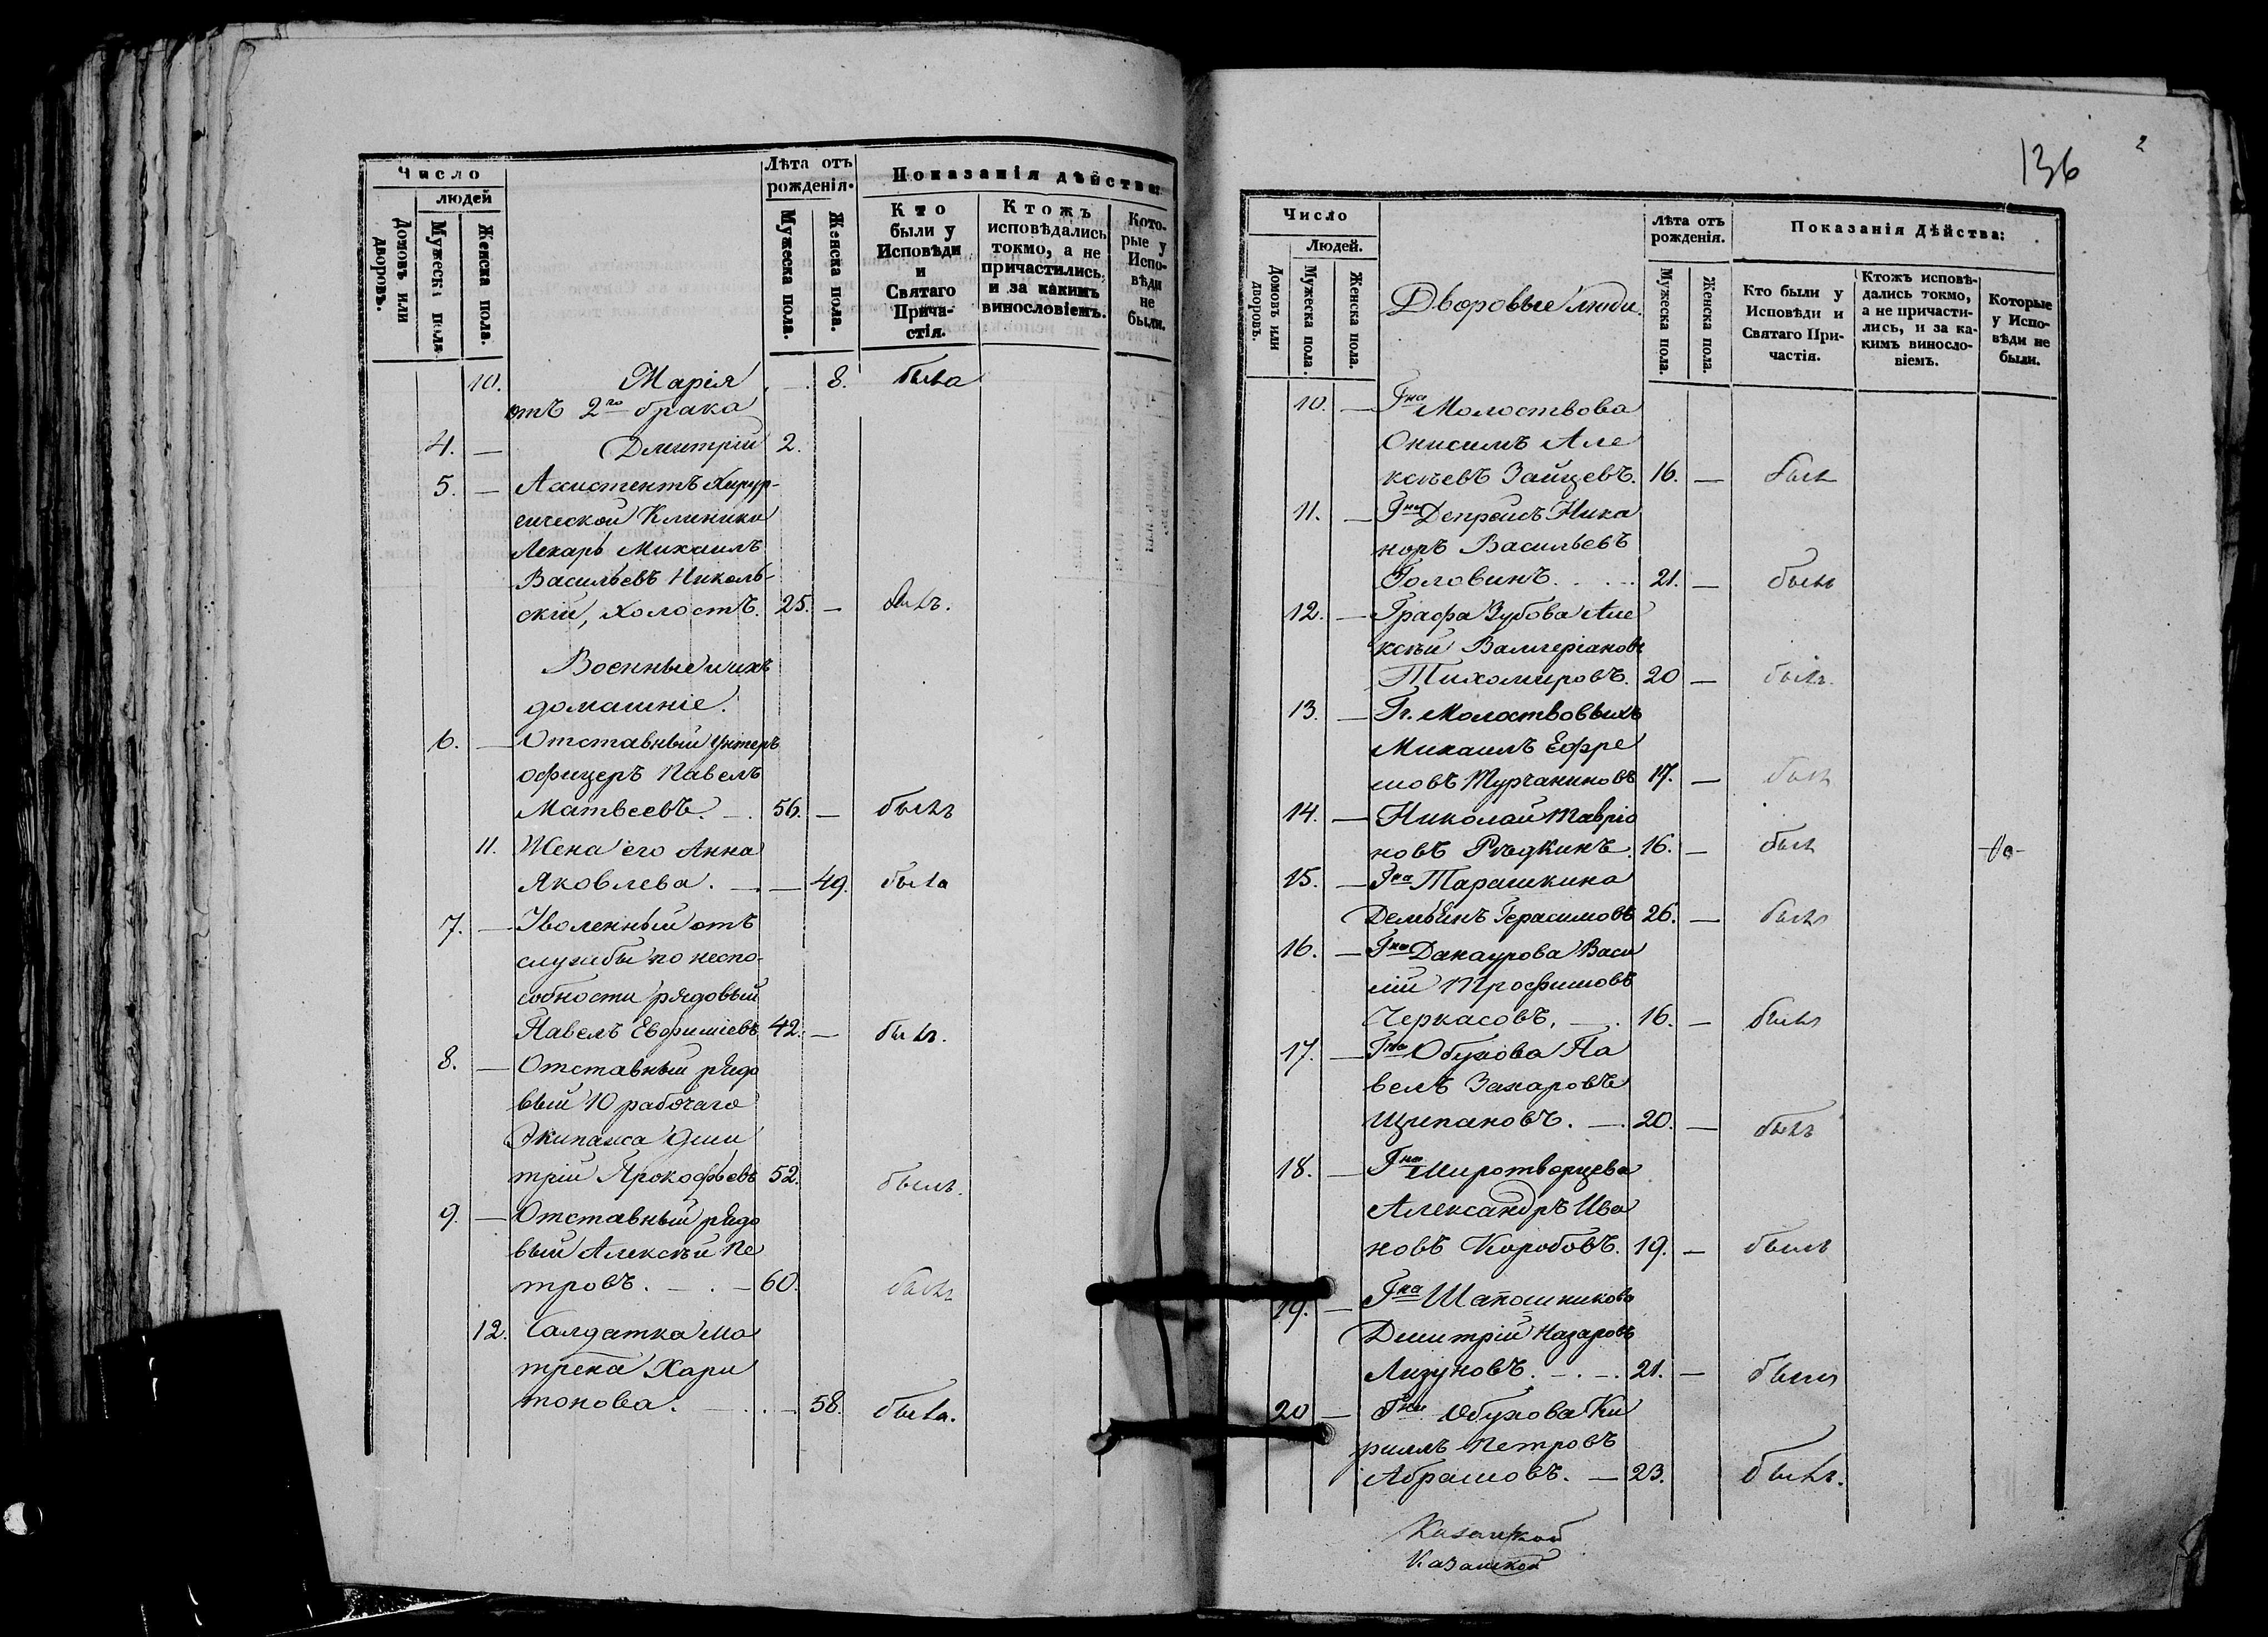 Число
людей
Домовъ или дворовъ.
Мужеска пола
Женска пола.
Лѣта отъ рожденія.
Мужеска пола.
Женска пола.
Показанія дѣйства:
Кто были у Исповѣди и Святаго Прича-стія.
Ктожъ исповѣдались токмо, а не причастились, и за какимъ винословіемъ.
Кото-рые у Испо-вѣди не были.
10. Марія . — . 8. была
отъ 2го брака
4. — Дмитрій 2.
5. — Асистентъ Хирур-
гической Клиники
Лекарь Михаилъ
Васильевъ Николь-
скій, холостъ. 25. — былъ.
Военные и ихъ
домашніе.
6. — Отставный Унтеръ
офицеръ Павелъ
Матвеевъ. — . 56. — былъ
11. Жена его Анна
Яковлева. — . — 49. была
7. — Уволенный отъ
службы по неспо-
собности рядовый
Павелъ Евфиміевъ 42. — былъ.
8. — Отставный рядо
вый 10 рабочаго
Экипажа Дми
трій Прокофьевъ 52. былъ.
9. — Отставный рядо
вый Алексѣй Пе
тровъ. — . — 60. былъ
12. Салдатка Ма
трена Хари
тонова. — . — 58. была.
136
2
Число
Людей.
Домовъ или дворовъ.
Мужеска пола.
Женска пола.
Дворовые люди.
Лѣта отъ рожденія.
Мужеска пола.
Женска пола.
Показанія Дѣйства:
Кто были у Исповѣди и Святаго При-частія.
Ктожъ исповѣ-дались токмо, а не причасти-лись, и за ка-кимъ виносло-віемъ.
Которые у Испо-вѣди не были.
10. — Гна Молоствова
Онисимъ Але
ксѣевъ Зайцевъ. 16. — былъ
11. — Гна Депрейсъ Ника
норъ Васильевъ
Головинъ. . . . . 21. — былъ
12. — Графа Зубова Але
ксѣй Валеріановъ
Тихомировъ. 20 — былъ.
13. — Гг. Молоствовыхъ
Михаилъ Ефре
мовъ Турчаниновъ 17. — былъ
14. — Николай Гаврило
новъ Рѣдкинъ. 16. — былъ
15. — Гна Тарашкина
Герасимовъ 26. — былъ
16. — Гна Данаурова Васи
лій Трофимовъ
Черкасовъ. — . 16. — былъ
17. — Гна Обухова Па
велъ Захаровъ
Щипановъ. — . 20. — былъ
18. — Гна Миротворцева
Александръ Ива
новъ Коробовъ. 19. — былъ
19. — Гна Шапошникова
Дмитрій Назаровъ
Лизуновъ. — . — . 21. — былъ
20 — Гна Обухова Ки
риллъ Петровъ
Абрамовъ. — 23. былъ.
Казанской
Казанской